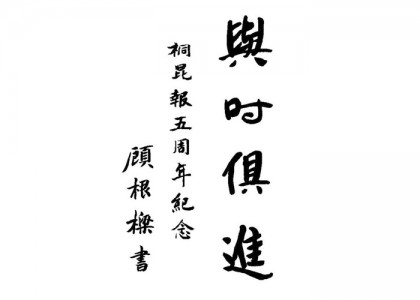 與时俱進
桐昆報五周年紀念
顧根樑書